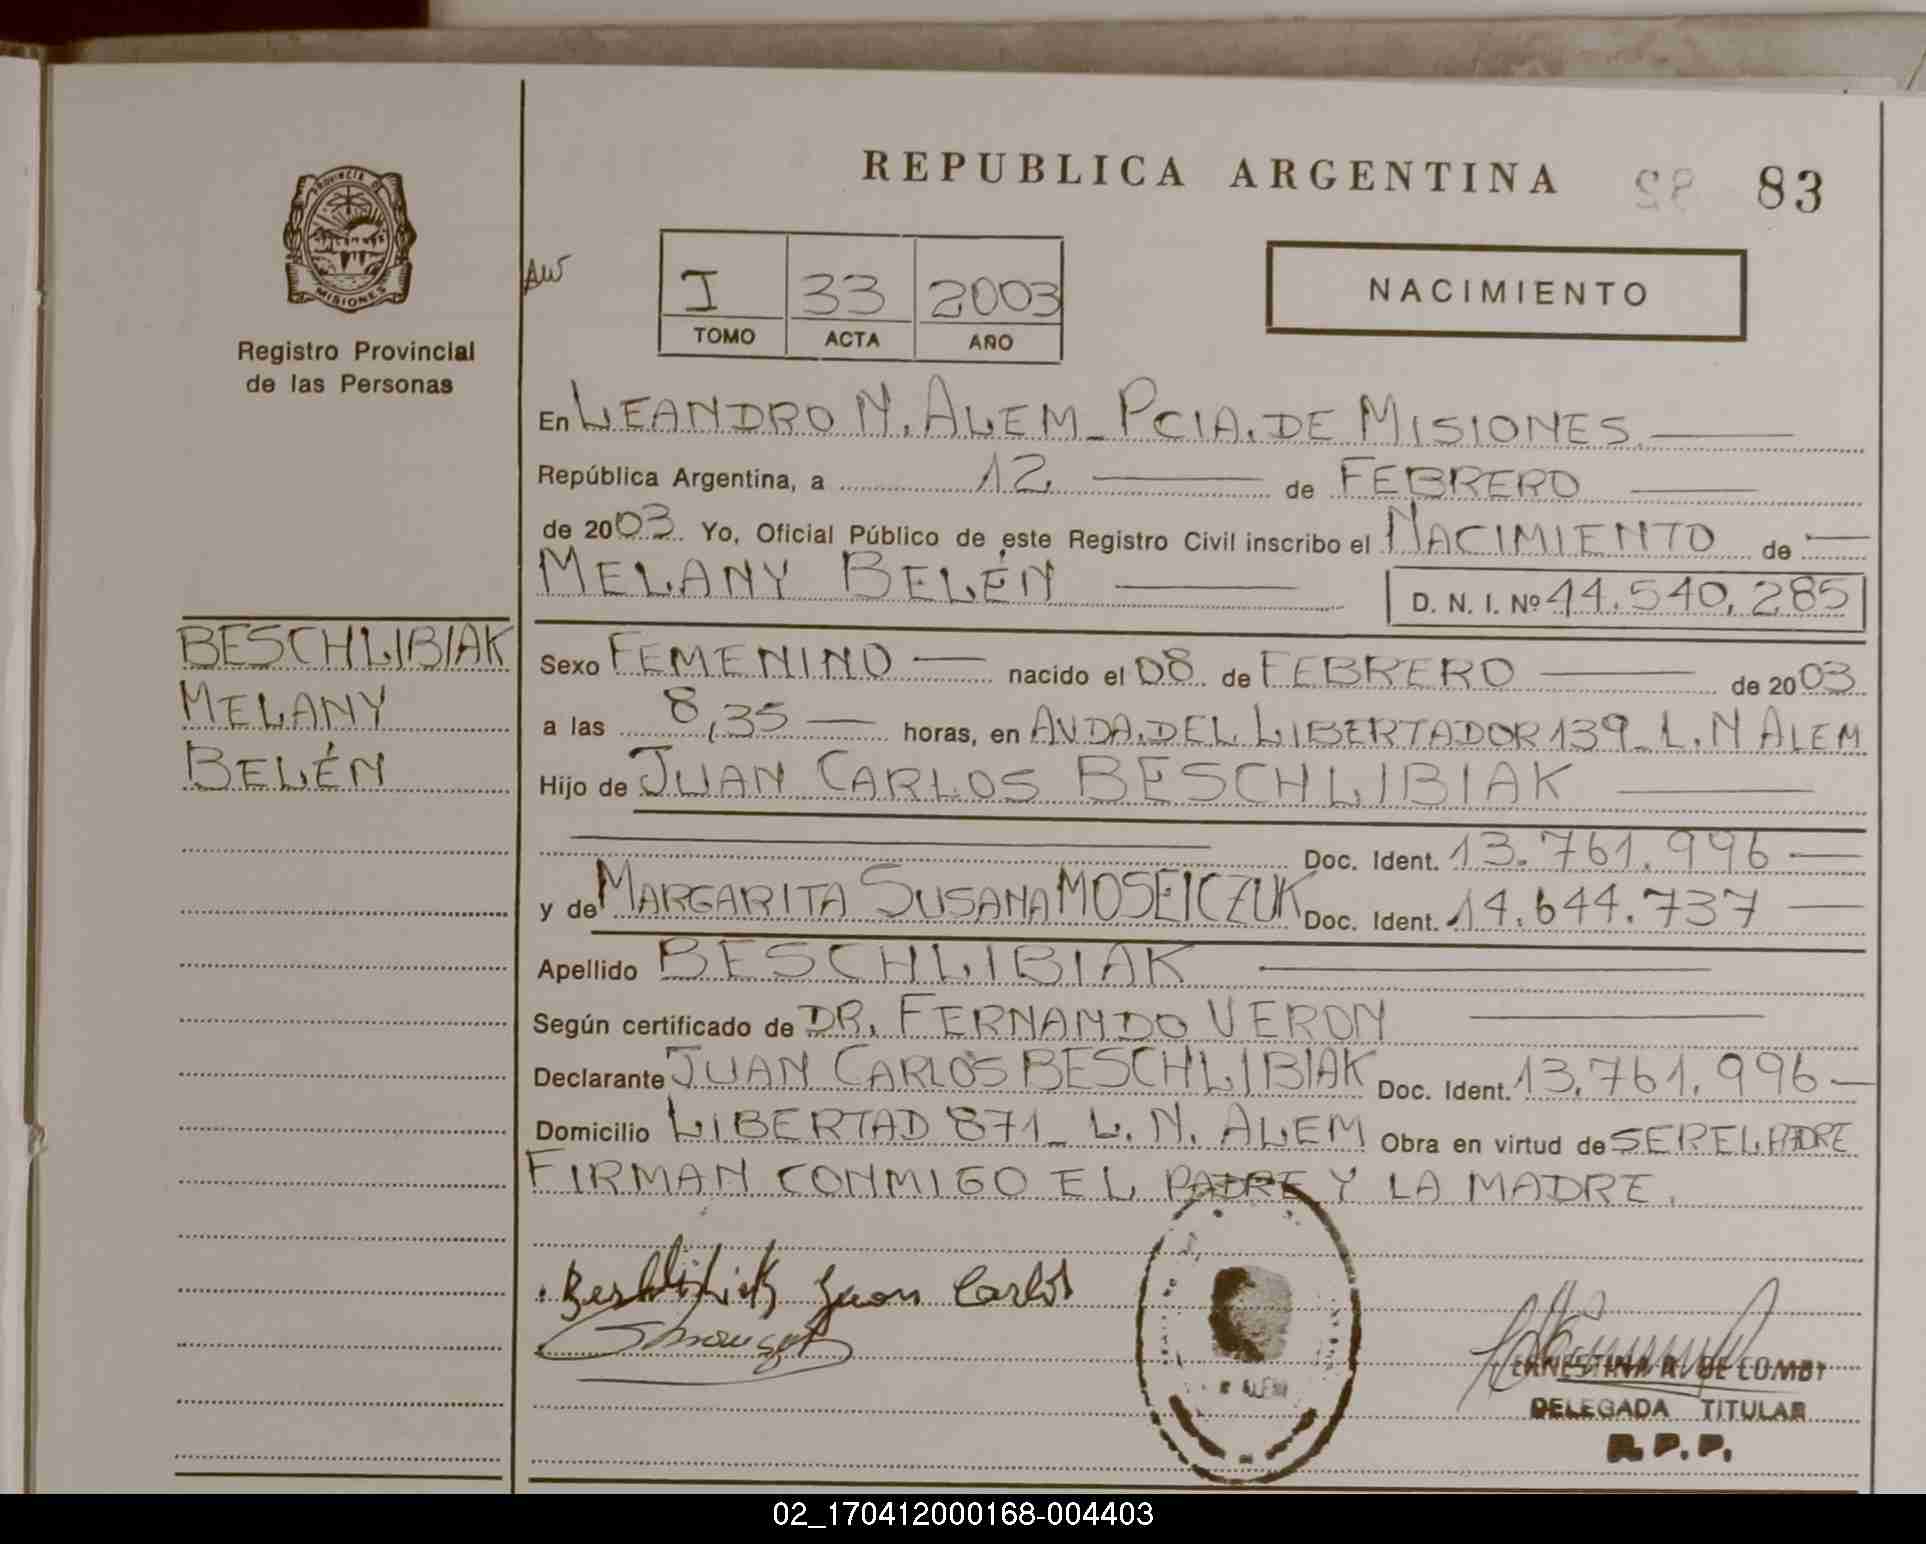 REPUBLICA ARGENTINA 83
PROVINCIA DE
MISIONES
Registro Provincial
de las Personas
AW
I 33 2003
TOMO ACTA AÑO
NACIMIENTO
En LEANDRO N. ALEM - PCIA. DE MISIONES
República Argentina, a 12 de FEBRERO
de 2003 Yo, Oficial Público de este Registro Civil inscribo el NACIMIENTO de
MELANY BELÉN D. N. I. Nº 44.540.285
BESCHLIBIAK
MELANY
BELÉN
Sexo FEMENINO nacido el 08 de FEBRERO de 2003
a las 8,35 horas, en AVDA. DEL LIBERTADOR 139 - L. N ALEM
Hijo de JUAN CARLOS BESCHLIBIAK
Doc. Ident. 13.761.996
y de MARGARITA SUSANA MOSEICZUK Doc. Ident. 14.644.737
Apellido BESCHLIBIAK
Según certificado de DR. FERNANDO VERON
Declarante JUAN CARLOS BESCHLIBIAK Doc. Ident. 13.761.996
Domicilio LIBERTAD 871 - L. N. ALEM Obra en virtud de SER EL PADRE
FIRMAN CONMIGO EL PADRE Y LA MADRE.
Beschlibiak Juan Carlos
ALEM
ERNESTINA R. DE COMBI
DELEGADA TITULAR
R. P. P.
02_170412000168-004403